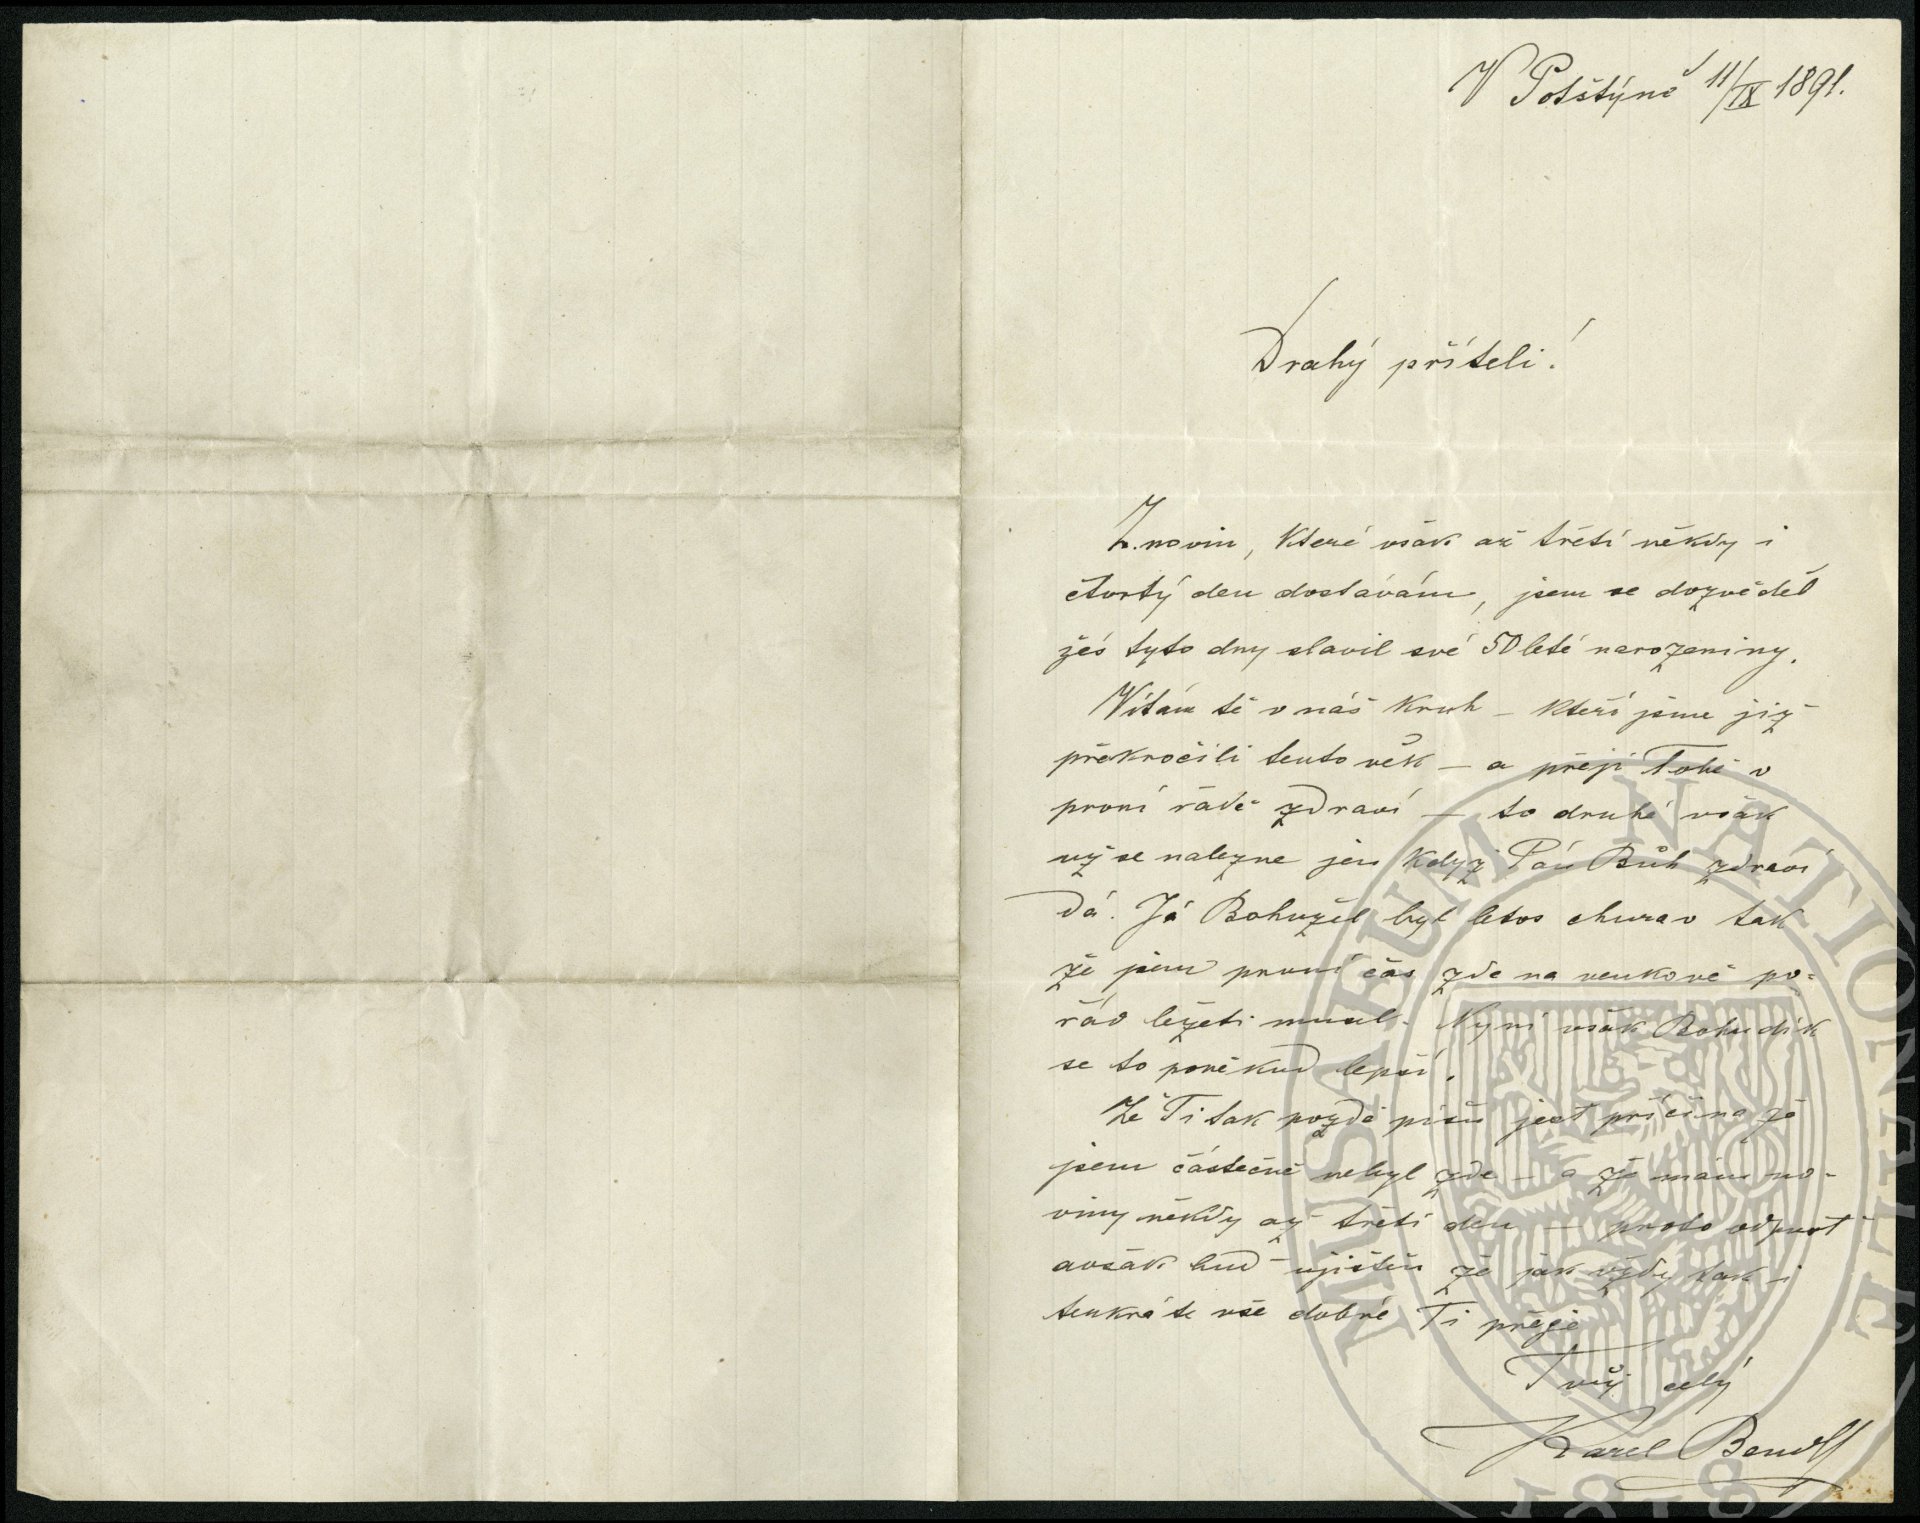 V Potštýně 11/IX 1891.
Drahý příteli!
Z novin, které však až třetí někdy i
čtvrtý den dostávám, jsem se dozvěděl
žes tyto dny slavil své 50leté narozeniny.
Vítám tě v náš kruh – kteří jsme již
překročili tento věk – a přeji Tobě v
první řadě zdraví – to druhé však
už se nalezne jen když Pán Bůh zdraví
dá. Já Bohužel byl letos churav tak
že jsem první čas zde na venkově po=
řád ležeti musel. Nyní však Bohudík
se to poněkud lepší.
Že Ti tak pozdě píšu jest příčina že
jsem částečně nebyl zde – a že mám no=
viny někdy až třetí den – proto odpusť
avšak buď ujištěn že jak vždy tak i
tenkráte vše dobré Ti přeje
Tvůj celý
Karel Bendl
MUSAEUM NATIONALE
1818